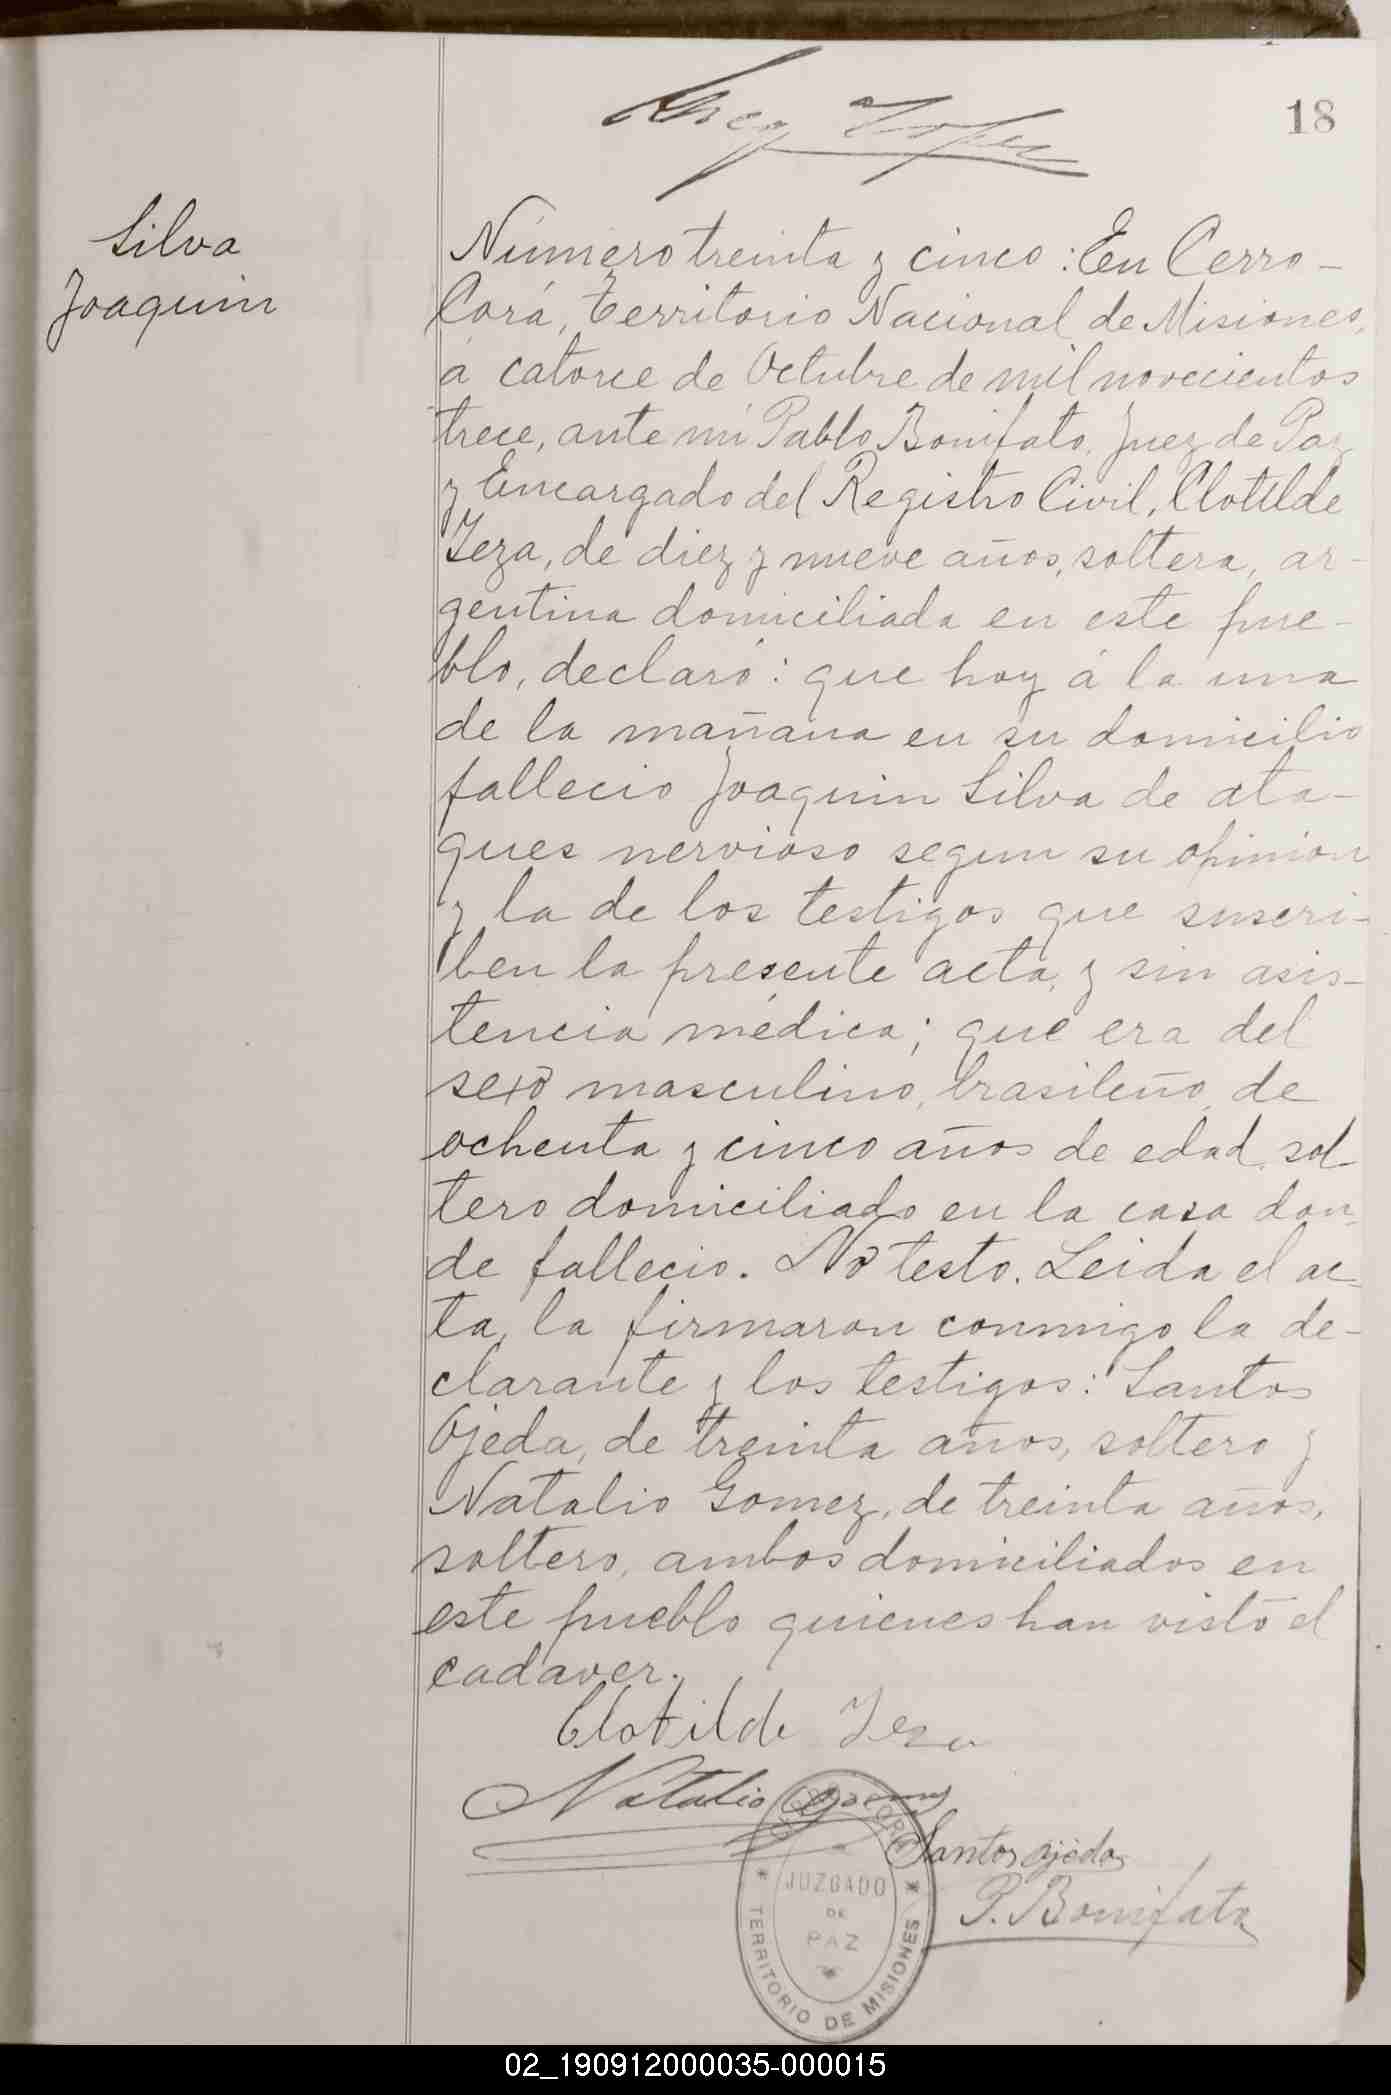 18
Silva
Joaquin
Número treinta y cinco: En Cerro-
Corá, Territorio Nacional de Misiones,
á catorce de Octubre de mil novecientos
trece, ante mi Pablo Bonifato, Juez de Paz
y Encargado del Registro Civil, Clotilde
Teza, de diez y nueve años, soltera, ar-
gentina domiciliada en este pue-
blo, declaró: que hoy á la una
de la mañana en su domicilio
fallecio Joaquin Silva de ata-
ques nervioso segun su opinion
y la de los testigos que suscri-
ben la presente acta, y sin asis-
tencia médica; que era del
sexo masculino, brasileño, de
ochenta y cinco años de edad, sol-
tero domiciliado en la casa don-
de fallecio. No testo. Leida el ac-
ta, la firmaron conmigo la de-
clarante y los testigos: Santos
Ojeda, de treinta años, soltero y
Natalio Gomez, de treinta años,
soltero, ambos domiciliados en
este pueblo quienes han visto el
cadaver.
Clotilde Teza
Natalio Gomez
Santos Ojeda
P. Bonifato
JUZGADO
DE
PAZ
TERRITORIO DE MISIONES
02_190912000035-000015